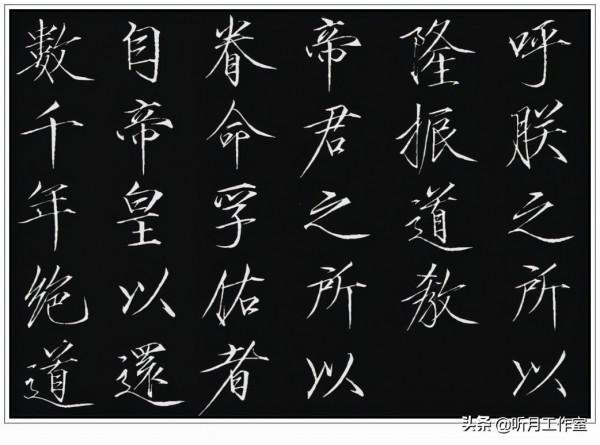 呼朕之所以
隆振道教
帝君之所以
眷命孚佑者
自帝皇以還
數千年絶道
头条 @听月工作室